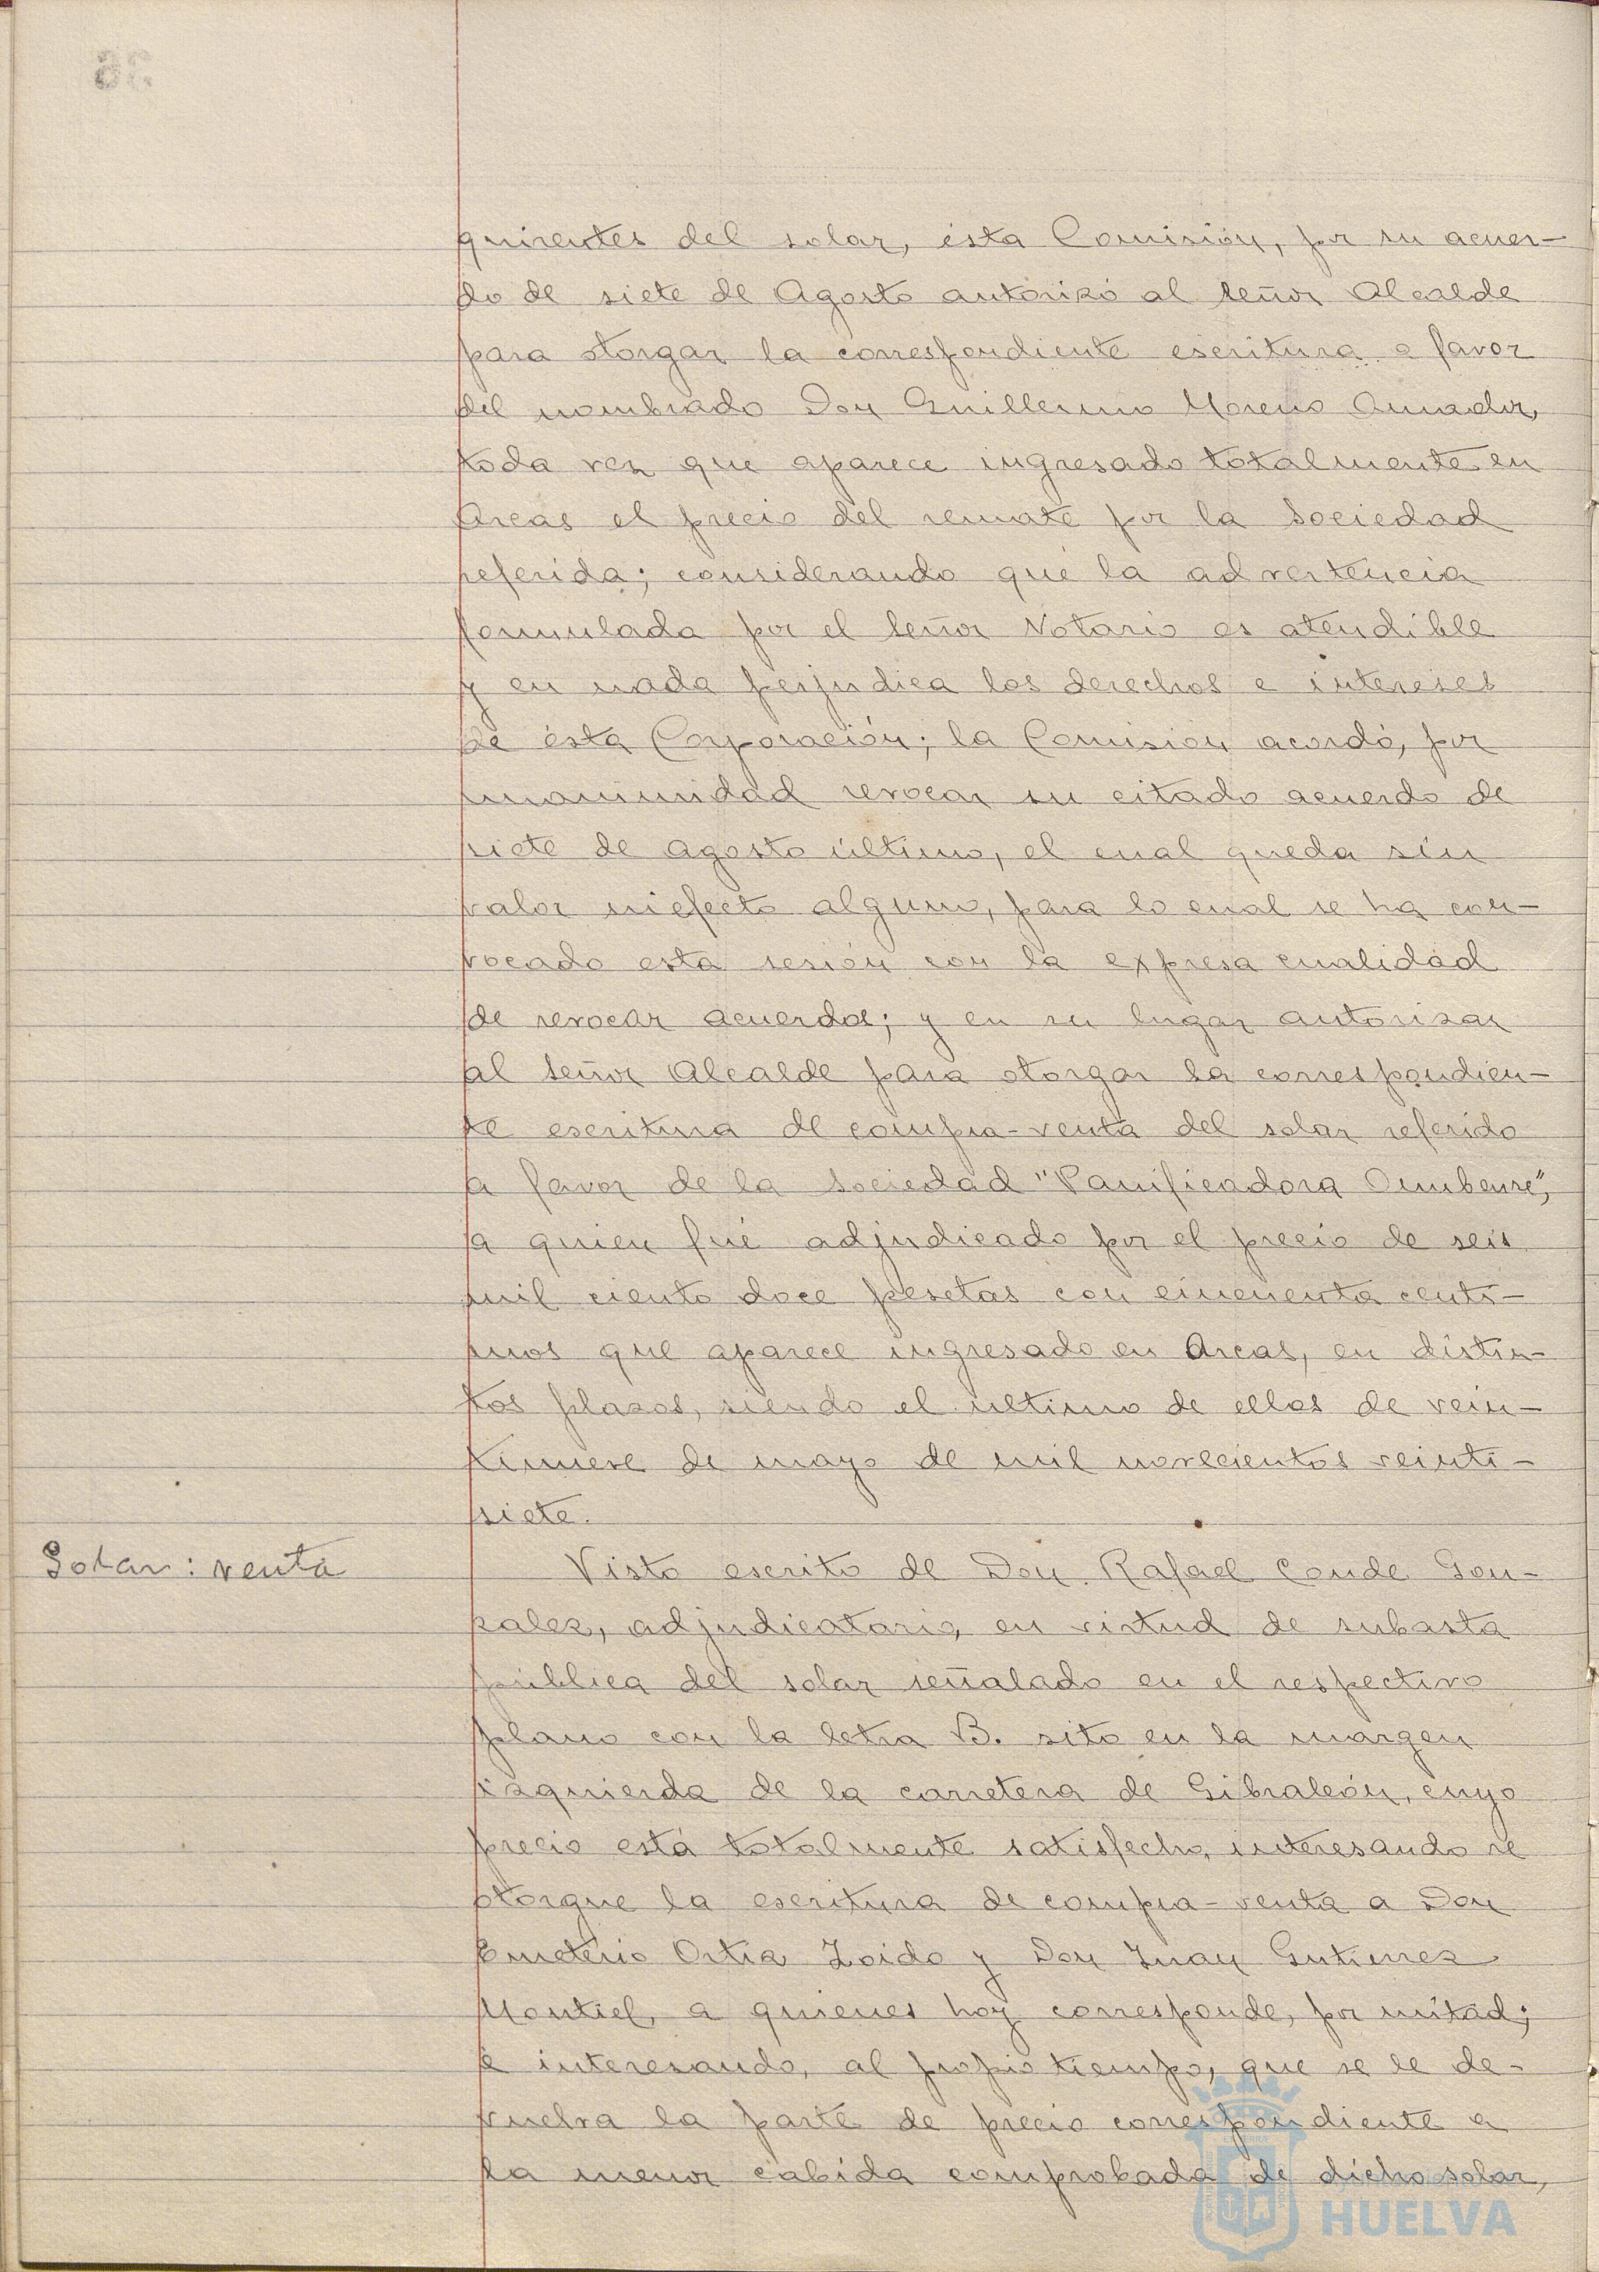 quirentes del solar, ésta Comisión, por su acuer-
do de siete de Agosto autorizó al señor Alcalde
para otorgar la correspondiente escritura a favor
del nombrado Don Guillermo Moreno Amador,
toda vez que aparece ingresado totalmente en
Arcas el precio del remate por la Sociedad
referida; considerando que la advertencia
formulada por el señor Notario es atendible
y en nada perjudica los derechos e intereses
de ésta Corporación; la Comisión acordó, por
unanimidad revocar su citado acuerdo de
siete de agosto último, el cual queda sin
valor ni efecto alguno, para lo cual se ha con-
vocado esta sesión con la expresa cualidad
de revocar acuerdos; y en su lugar autorizar
al señor Alcalde para otorgar la correspondien-
te escritura de compra-venta del solar referido
a favor de la Sociedad "Panificadora Onubense",
a quien fué adjudicado por el precio de seis
mil ciento doce pesetas con cincuenta centi-
mos que aparece ingresado en Arcas, en distin-
tos plazos, siendo el ultimo de ellos de vein-
tinueve de mayo de mil novecientos veinti-
siete.
Solar: venta
Visto escrito de Don Rafael Conde Gon-
zalez, adjudicatario, en virtud de subasta
pública del solar señalado en el respectivo
plano con la letra B. sito en la margen
izquierda de la carretera de Gibraleón, cuyo
precio está totalmente satisfecho, interesando se
otorgue la escritura de compra-venta a Don
Emeterio Ortia Zoido y Don Juan Gutierrez
Montiel, a quienes hoy corresponde, por mitad;
e interesando, al propio tiempo, que se le de-
vuelva la parte de precio correspondiente a
la menor cabida comprobada de dicho solar,
HUELVA